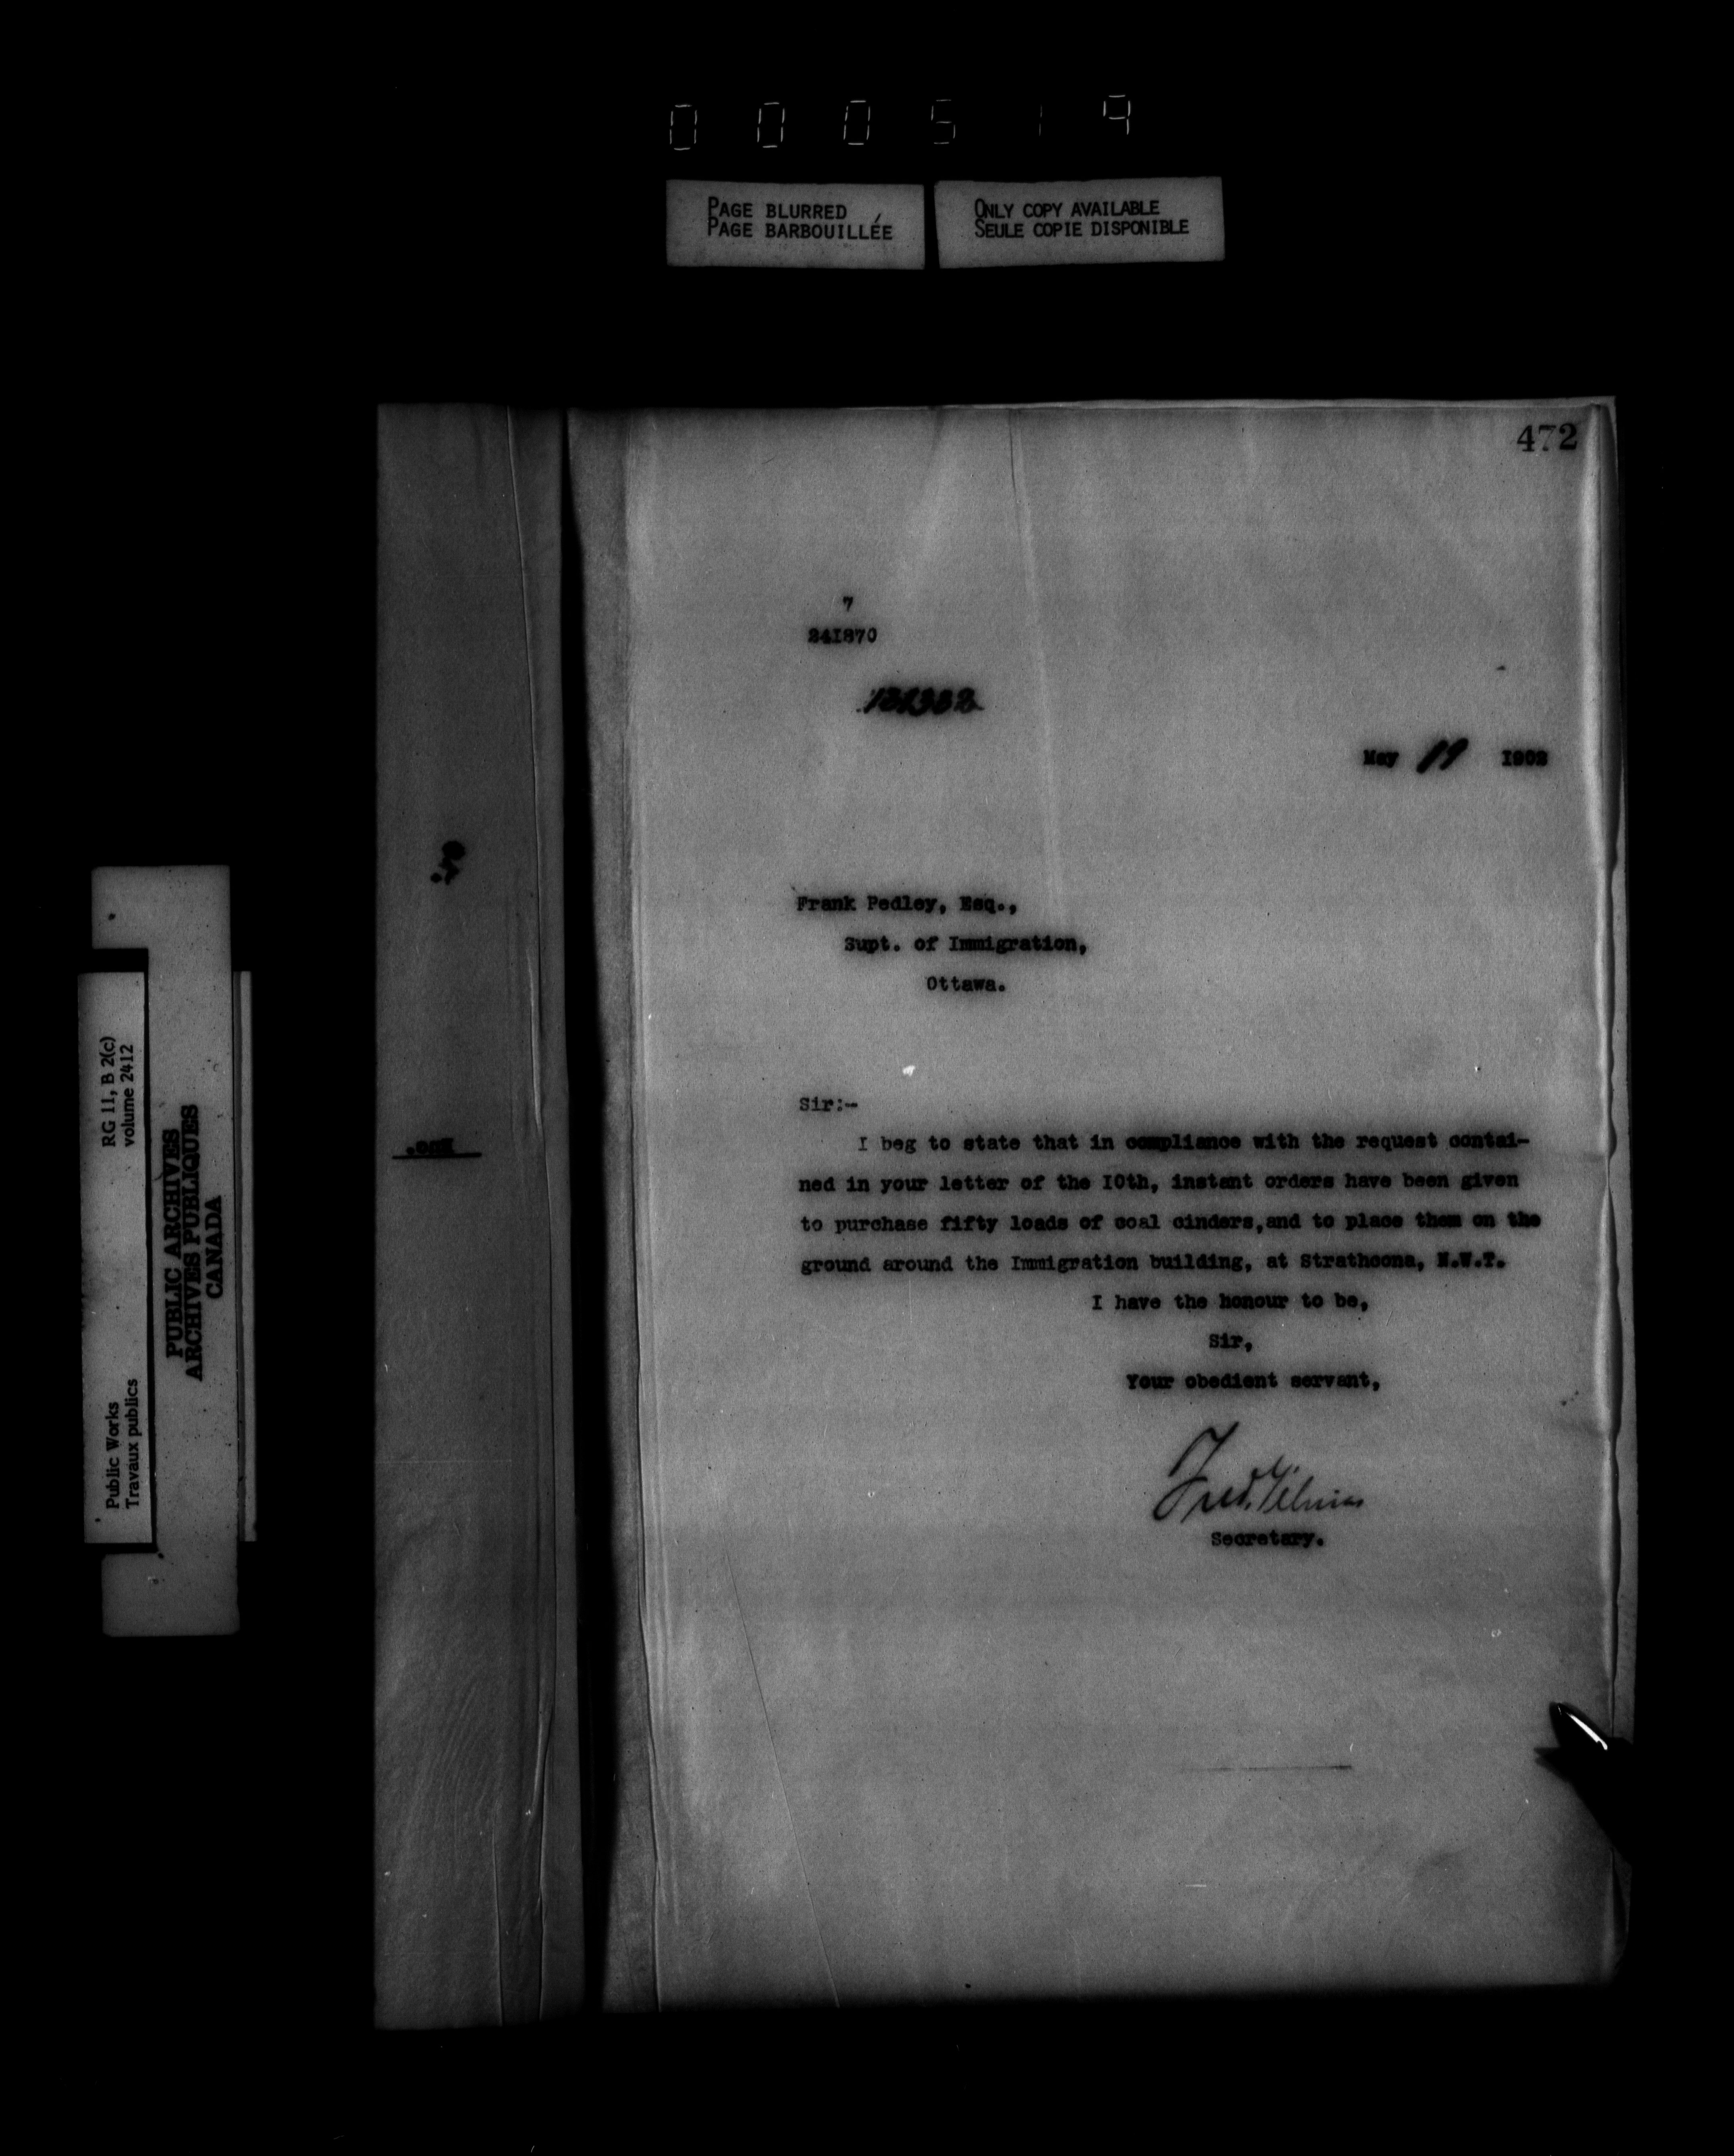 000519
PAGE BLURRED
PAGE BARBOUILLÉE
ONLY COPY AVAILABLE
SEULE COPIE DISPONIBLE
472
7
241870
May 19 1902
Frank Pedley, Esq.,
Supt. of Immigration,
Ottawa.
Sir:-
I beg to state that in compliance with the request contai-
ned in your letter of the 10th, instant orders have been given
to purchase fifty loads of coal cinders,and to place them on the
ground around the Immigration building, at Strathcona, N.W.T.
I have the honour to be,
Sir,
Your obedient servant,
Fred. Gélinas
Secretary.
RG 11, B 2(c)
volume 2412
Public Works
Travaux publics
PUBLIC ARCHIVES
ARCHIVES PUBLIQUES
CANADA